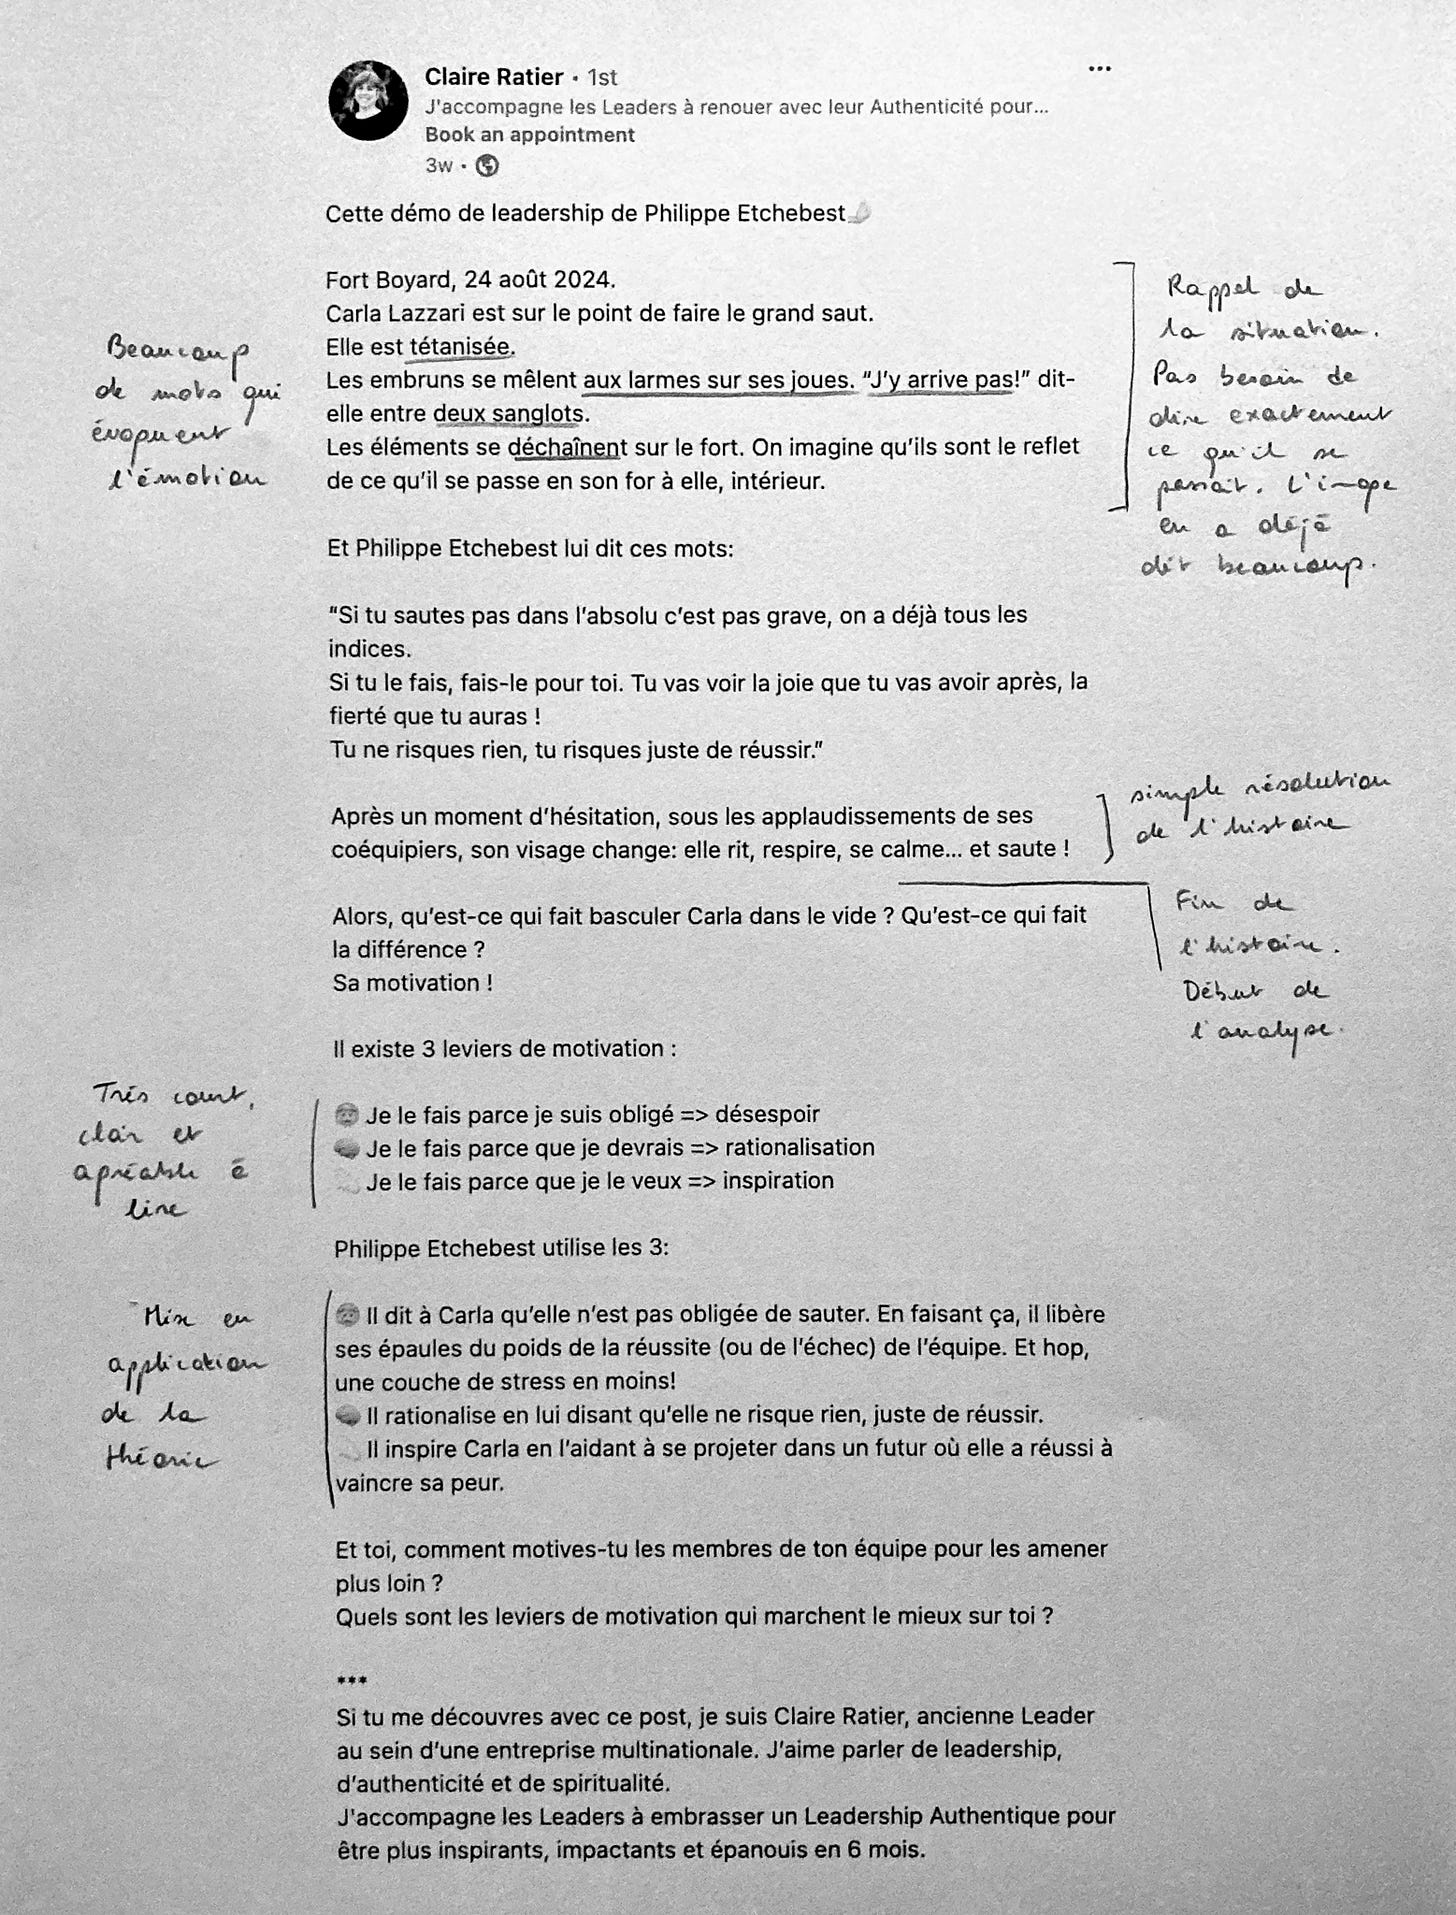 Claire Ratier • 1st
...
J'accompagne les Leaders à renouer avec leur Authenticité pour...
Book an appointment
3w •
Cette démo de leadership de Philippe Etchebest
Fort Boyard, 24 août 2024.
Carla Lazzari est sur le point de faire le grand saut.
Elle est tétanisée.
Les embruns se mêlent aux larmes sur ses joues. "J'y arrive pas!" dit-
elle entre deux sanglots.
Les éléments se déchaînent sur le fort. On imagine qu'ils sont le reflet
de ce qu'il se passe en son for à elle, intérieur.
Beaucoup
de mots qui
évoquent
l'émotion
Rappel de
la situation.
Pas besoin de
dire exactement
ce qu'il se
passait. L'image
en a déjà
dit beaucoup.
Et Philippe Etchebest lui dit ces mots:
"Si tu sautes pas dans l'absolu c'est pas grave, on a déjà tous les
indices.
Si tu le fais, fais-le pour toi. Tu vas voir la joie que tu vas avoir après, la
fierté que tu auras !
Tu ne risques rien, tu risques juste de réussir."
Après un moment d'hésitation, sous les applaudissements de ses
coéquipiers, son visage change: elle rit, respire, se calme... et saute !
simple résolution
de l'histoire
Alors, qu'est-ce qui fait basculer Carla dans le vide ? Qu'est-ce qui fait
la différence ?
Sa motivation !
Fin de
l'histoire.
Début de
l'analyse.
Il existe 3 leviers de motivation :
Je le fais parce je suis obligé => désespoir
Je le fais parce que je devrais => rationalisation
Je le fais parce que je le veux => inspiration
Très court,
clair et
agréable à
lire
Philippe Etchebest utilise les 3:
Il dit à Carla qu'elle n'est pas obligée de sauter. En faisant ça, il libère
ses épaules du poids de la réussite (ou de l'échec) de l'équipe. Et hop,
une couche de stress en moins!
Il rationalise en lui disant qu'elle ne risque rien, juste de réussir.
Il inspire Carla en l'aidant à se projeter dans un futur où elle a réussi à
vaincre sa peur.
Mise en
application
de la
théorie
Et toi, comment motives-tu les membres de ton équipe pour les amener
plus loin ?
Quels sont les leviers de motivation qui marchent le mieux sur toi ?
***
Si tu me découvres avec ce post, je suis Claire Ratier, ancienne Leader
au sein d'une entreprise multinationale. J'aime parler de leadership,
d'authenticité et de spiritualité.
J'accompagne les Leaders à embrasser un Leadership Authentique pour
être plus inspirants, impactants et épanouis en 6 mois.